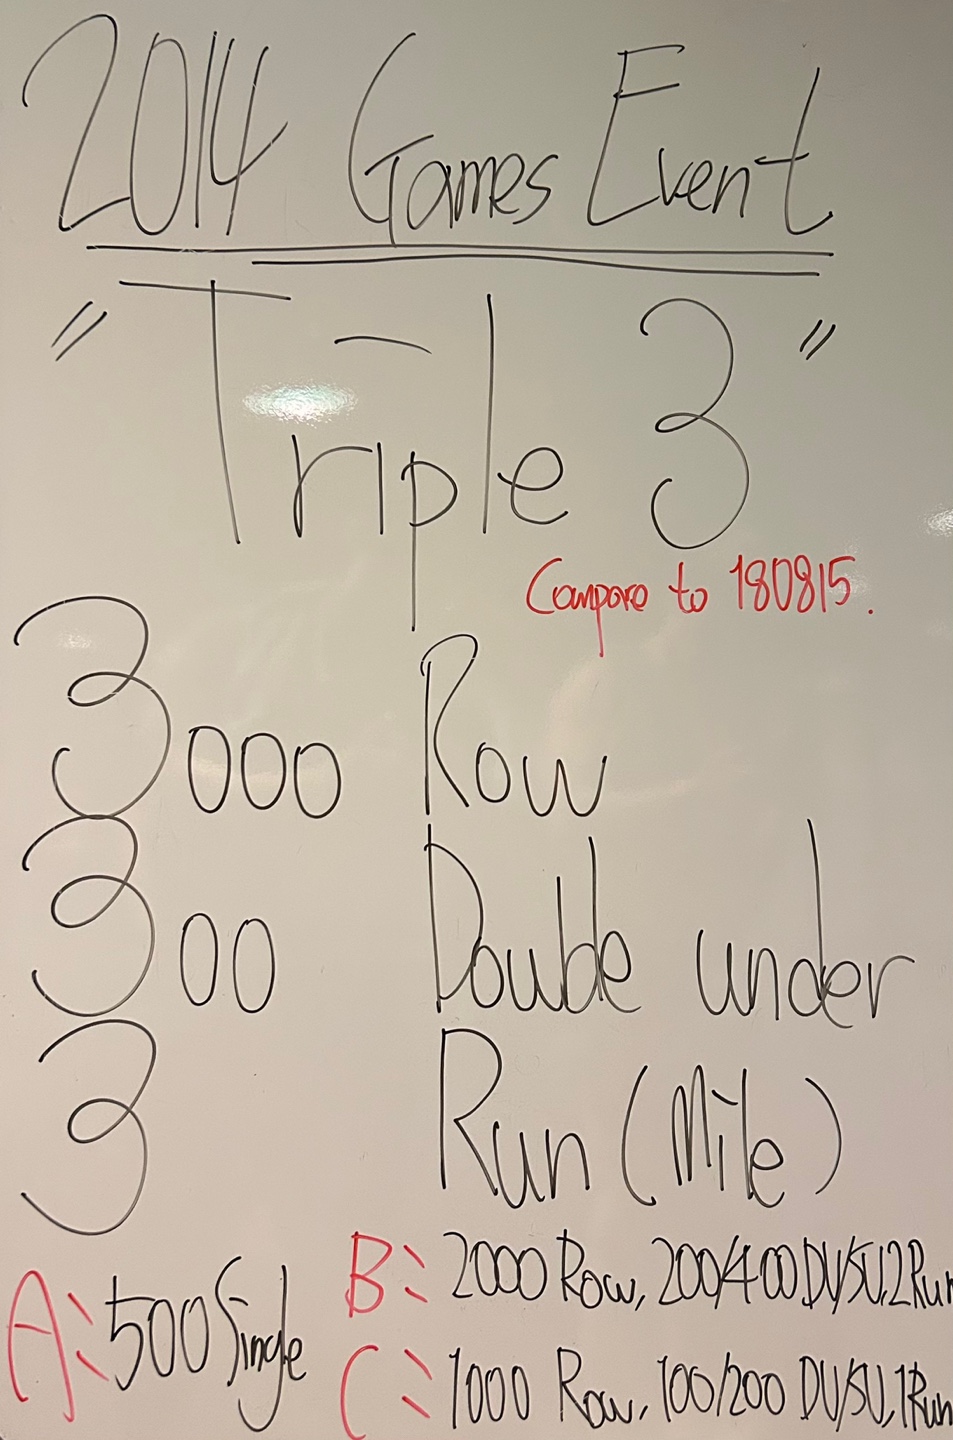 2014 Games Event
"Triple 3"
Compare to 180815.
3000 Row
300 Double under
3 Run (Mile)
A: 500 Single
B: 2000 Row, 200/400 DU/SU, 2 Run
C: 1000 Row, 100/200 DU/SU, 1 Run